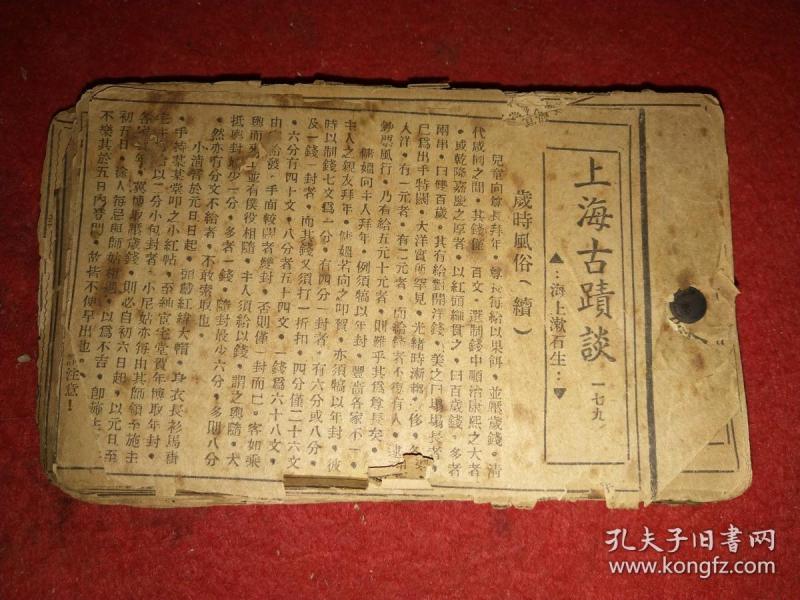 上海古蹟談 一七九
▲∴海上漱石生∴▼
歲時風俗（續）
兒童向尊長拜年。尊長每給以果餌。並壓歲錢。清
代咸同之間。其錢僅一百文。選制錢中順治康熙之大者
。或乾隆嘉慶之厚者。以紅頭繩貫之。曰百歲錢。多者
兩串。曰雙百歲。其有給對開洋錢
已爲出手特闊。大洋實所罕見。光緒時漸
人洋。有一元者。有二元者。而給
鈔票風行。乃有給五元十元者。則難乎其爲尊長矣。
傭媼向主人拜年。例須犒以年封。豐嗇各家不一。
主人之親友拜年。傭媼若向之叩賀。亦須犒以年封。彼
時以制錢七文爲一分。有四分一封者。有六分或八分
及一錢一封者。而其錢又須打一折扣。四分僅二十六文
。六分有四十文。八分者五十四文。一錢爲六十八文。
由 給發。手面較闊者雙封。否則僅一封而已。客如乘
輿而來。並有僕役相隨。主人須給以錢。謂之輿隨。大
抵輿封最少一分。多者一錢。隨封最少六分。多則八分
。然亦有分文不給者。不敢索取也。
小清音於元日起。頭戴紅緯大帽。身衣長衫馬褂
。手持某某堂叩之小紅帖。至紳宦宅堂賀年博取年封。
給以二分小包封者。小尼姑亦每由其師領至施主
各家 年。冀博取壓歲錢。則必自初六日起。以元日至
初五日。俗人每忌與師姑相遇。以爲不吉。卽施主
不樂其於五日內登門。故皆不便早出也。
注意！
孔夫子旧书网
www.kongfz.com